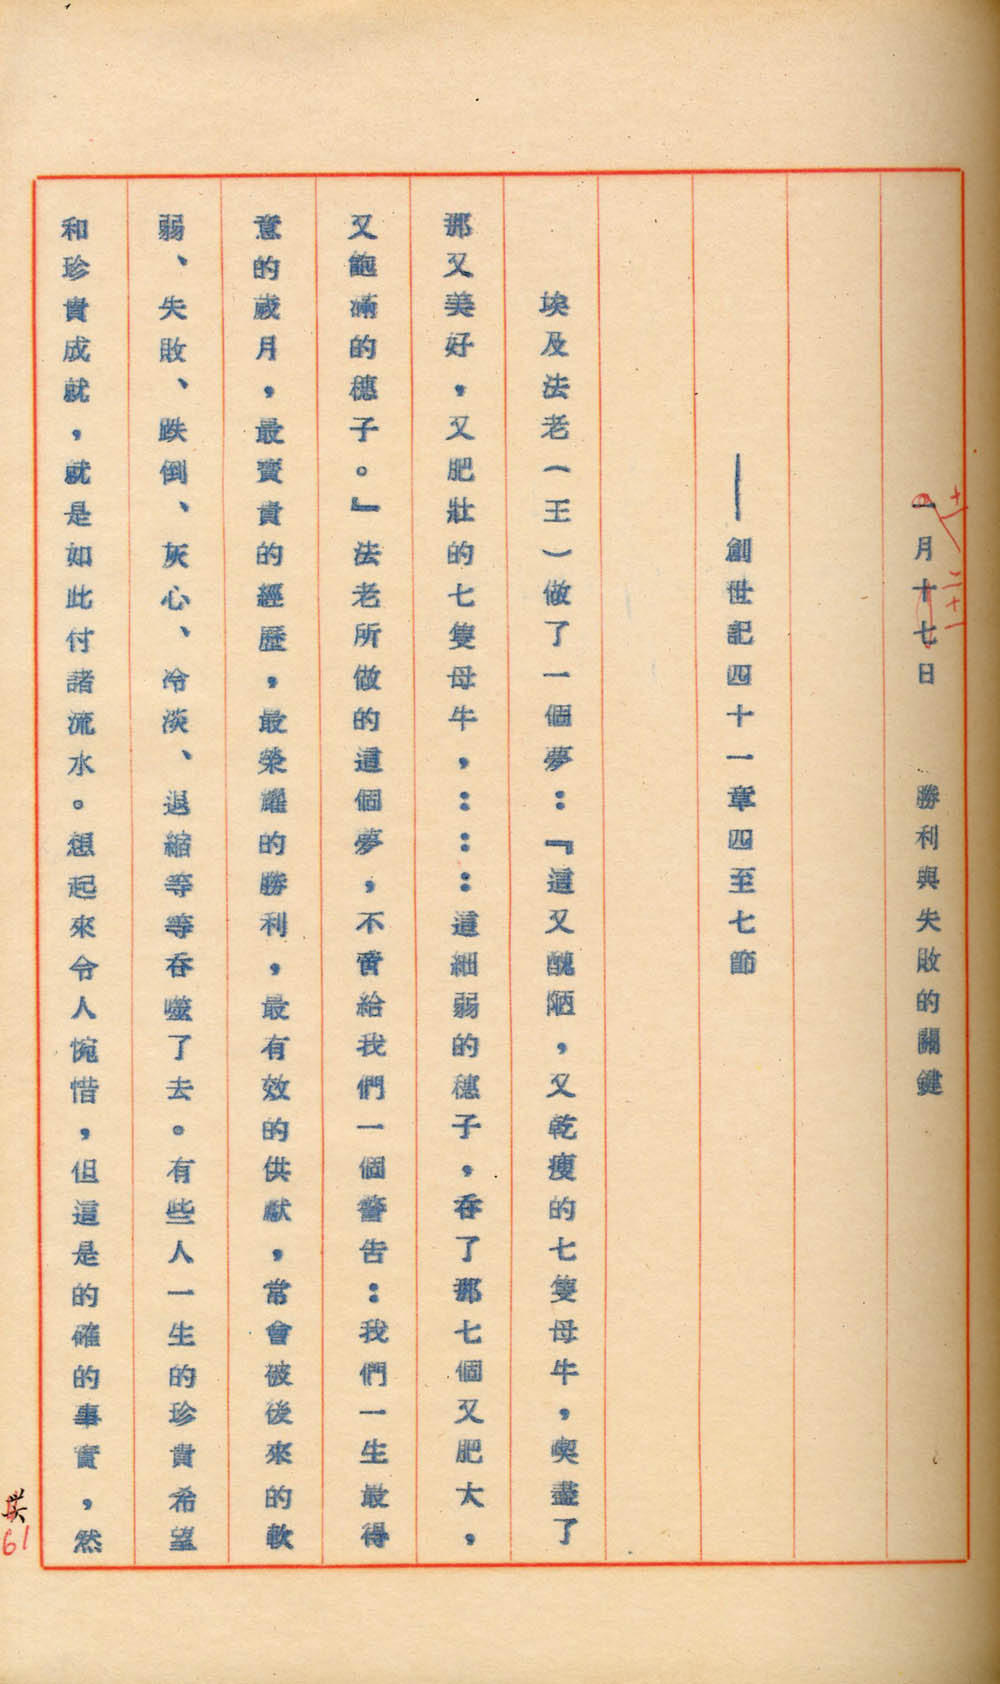 一月十七日　勝利與失敗的關鍵
十一
二十一
——創世記四十一章四至七節
埃及法老（王）做了一個夢：『這又醜陋，又乾瘦的七隻母牛，喫盡了
那又美好，又肥壯的七隻母牛，：：：這細弱的穗子，吞了那七個又肥大，
又飽滿的穗子。』法老所做的這個夢，不啻給我們一個警告：我們一生最得
意的歲月，最寶貴的經歷，最榮耀的勝利，最有效的供獻，常會被後來的軟
弱、失敗、跌倒、灰心、冷淡、退縮等等吞噬了去。有些人一生的珍貴希望
和珍貴成就，就是如此付諸流水。想起來令人惋惜，但這是的確的事實，然
61